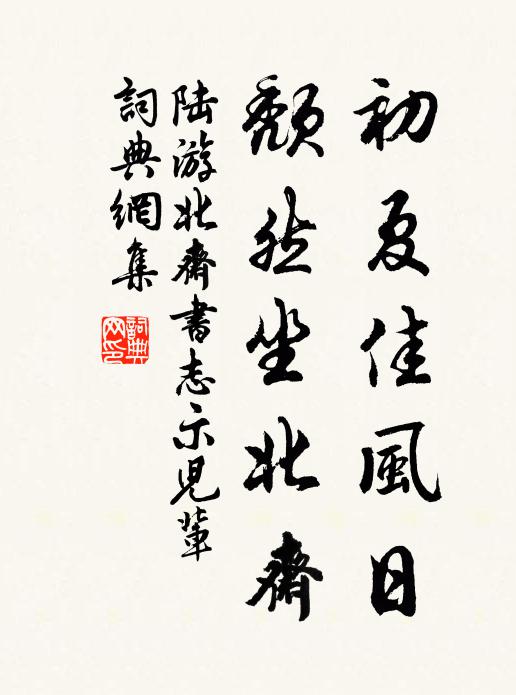 初夏佳風日
頹然坐北齋
陸游北齋書志示兒輩
詞典網集
詞典
網印